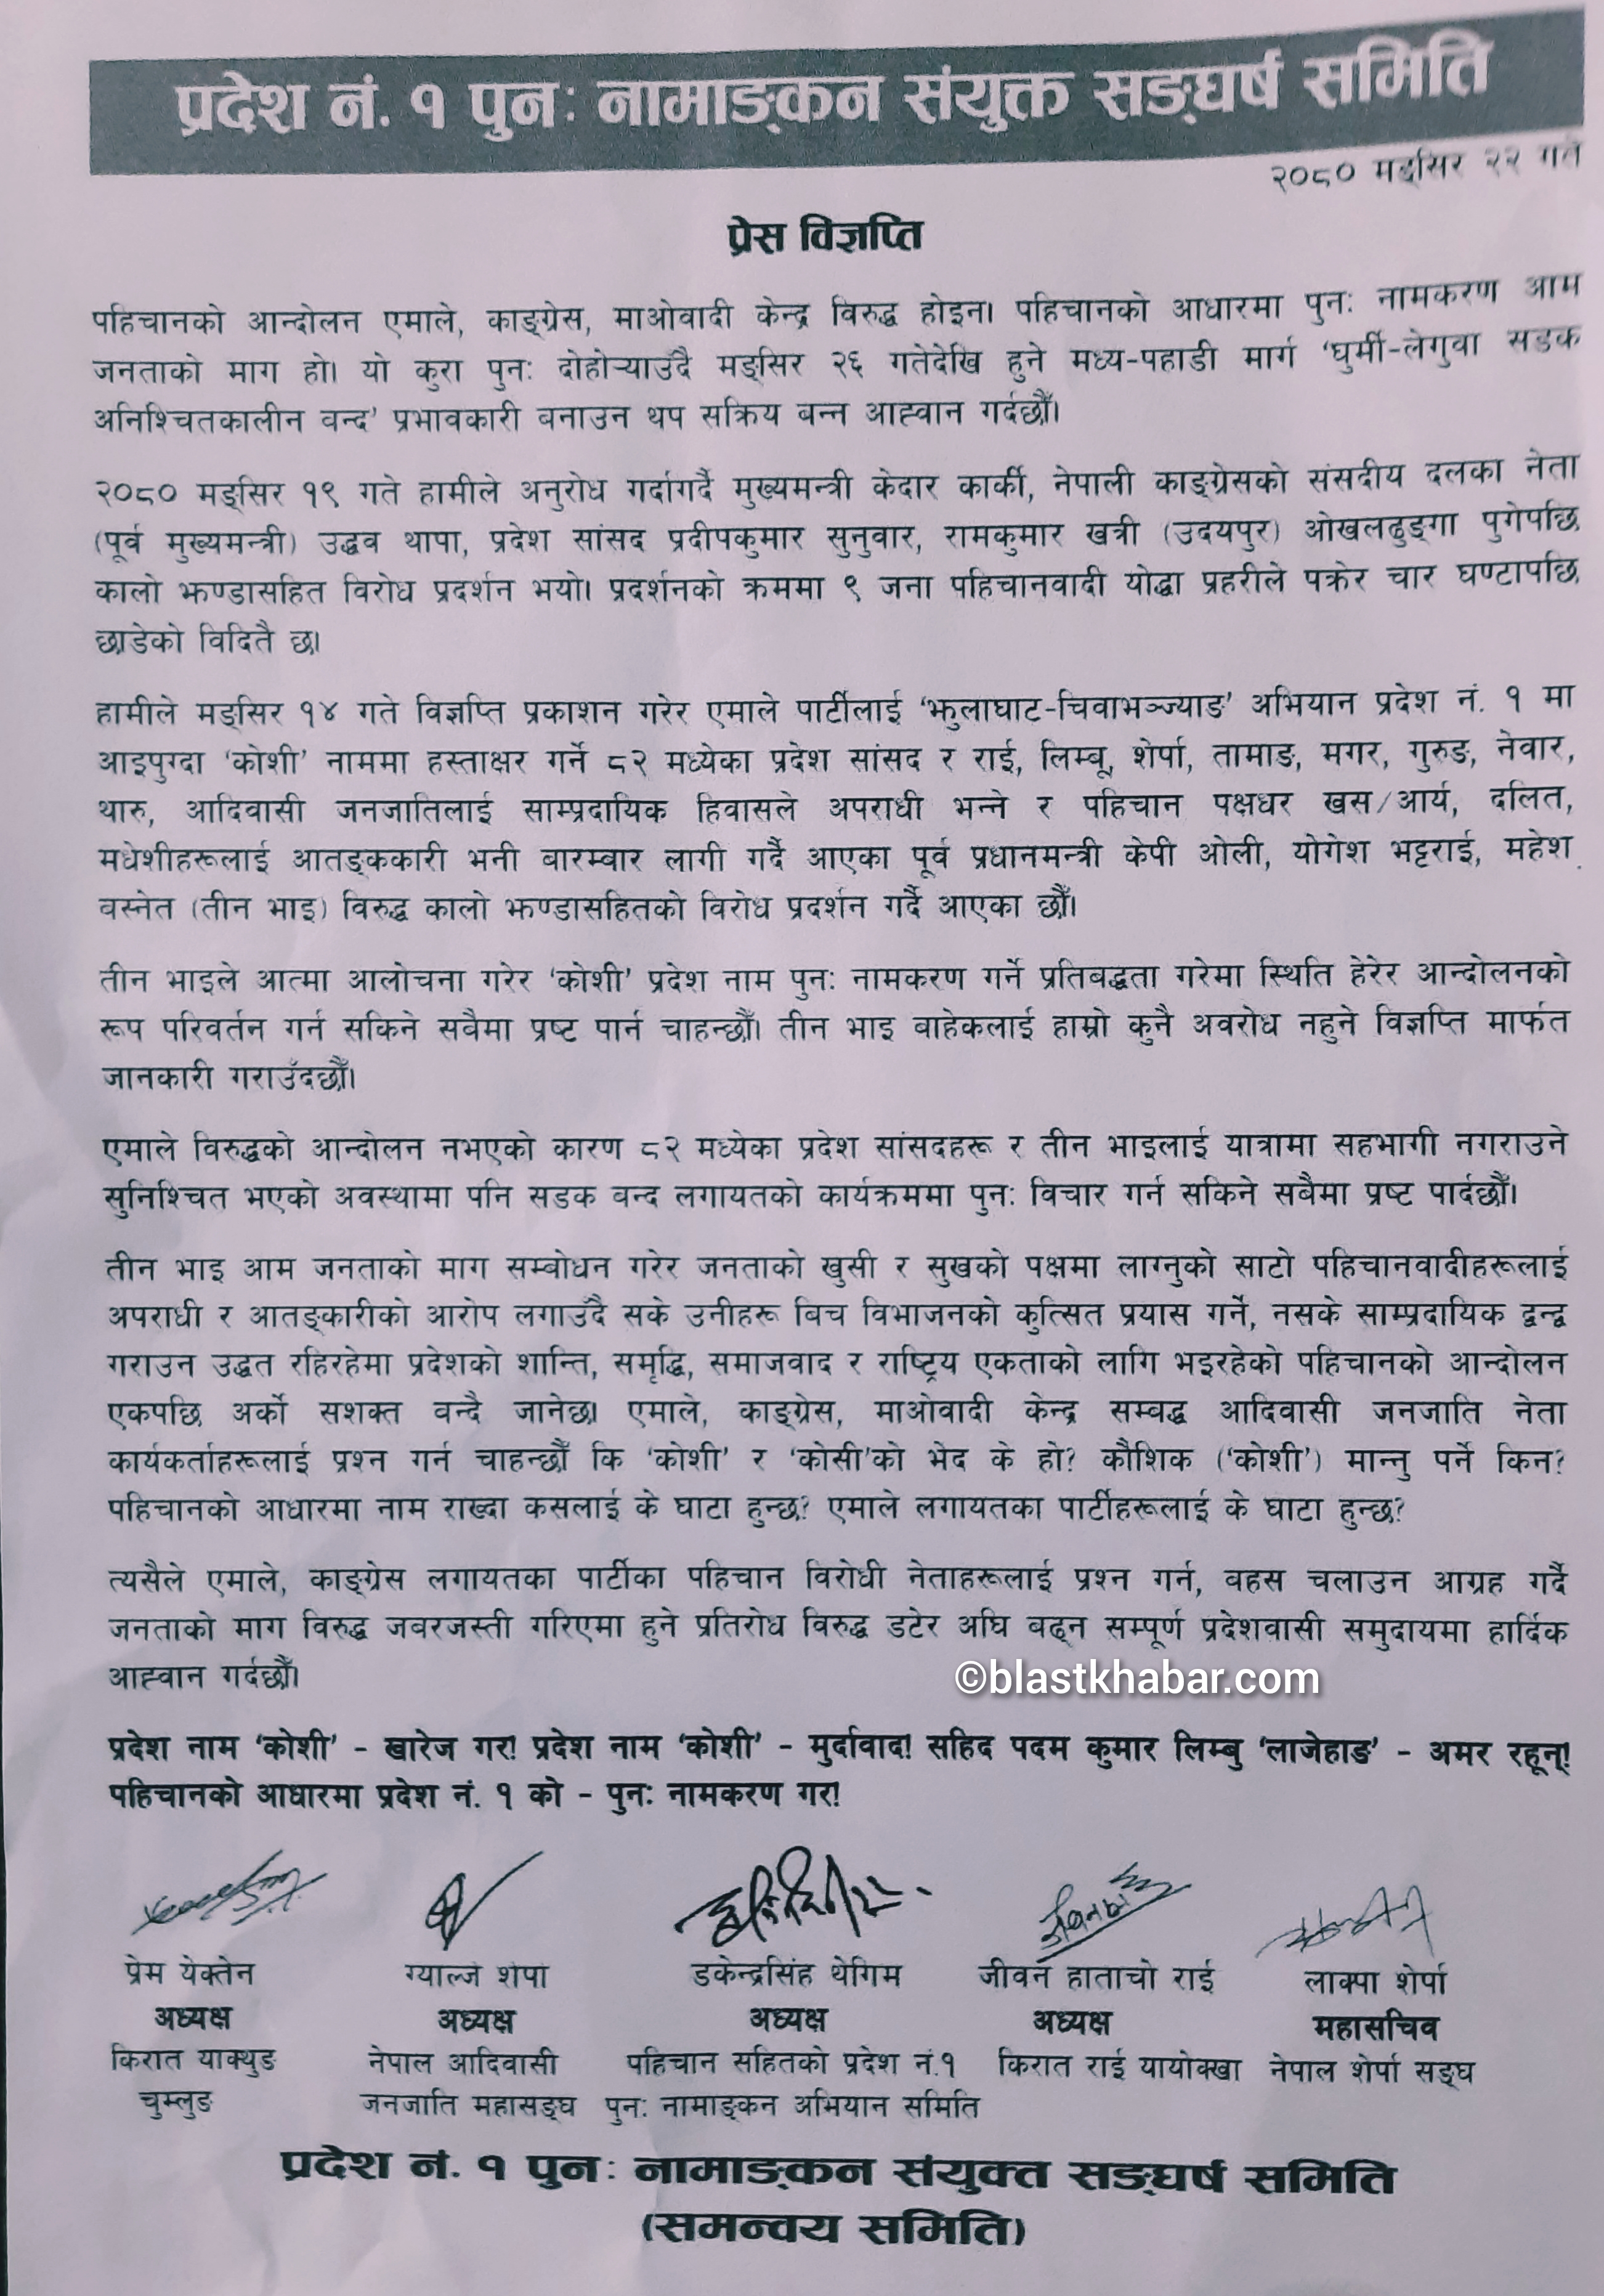 प्रदेश नं. १ पुनः नामाङ्कन संयुक्त सङ्घर्ष समिति
२०८० मङ्सिर २२ गते
प्रेस विज्ञप्ति
पहिचानको आन्दोलन एमाले, काङ्ग्रेस, माओवादी केन्द्र विरुद्ध होइन। पहिचानको आधारमा पुनः नामकरण आम
जनताको माग हो। यो कुरा पुनः दोहोर्‍याउँदै मङ्सिर २६ गतेदेखि हुने मध्य-पहाडी मार्ग 'घुर्मी-लेगुवा सडक
अनिश्चितकालीन बन्द' प्रभावकारी बनाउन थप सक्रिय बन्न आह्वान गर्दछौँ।
२०८० मङ्सिर १९ गते हामीले अनुरोध गर्दागर्दै मुख्यमन्त्री केदार कार्की, नेपाली काङ्ग्रेसको संसदीय दलका नेता
(पूर्व मुख्यमन्त्री) उद्धव थापा, प्रदेश सांसद प्रदीपकुमार सुनुवार, रामकुमार खत्री (उदयपुर) ओखलढुङ्गा पुगेपछि
कालो झण्डासहित विरोध प्रदर्शन भयो। प्रदर्शनको क्रममा ९ जना पहिचानवादी योद्धा प्रहरीले पक्रेर चार घण्टापछि
छाडेको विदितै छ।
हामीले मङ्सिर १४ गते विज्ञप्ति प्रकाशन गरेर एमाले पार्टीलाई 'झुलाघाट-चिवाभञ्ज्याङ' अभियान प्रदेश नं. १ मा
आइपुग्दा 'कोशी' नाममा हस्ताक्षर गर्ने ८२ मध्येका प्रदेश सांसद र राई, लिम्बू, शेर्पा, तामाङ, मगर, गुरुङ, नेवार,
थारु, आदिवासी जनजातिलाई साम्प्रदायिक हिवासले अपराधी भन्ने र पहिचान पक्षधर खस/आर्य, दलित,
मधेशीहरूलाई आतङ्ककारी भनी बारम्बार लागी गर्दै आएका पूर्व प्रधानमन्त्री केपी ओली, योगेश भट्टराई, महेश
वस्नेत (तीन भाइ) विरुद्ध कालो झण्डासहितको विरोध प्रदर्शन गर्दै आएका छौँ।
तीन भाइले आत्मा आलोचना गरेर 'कोशी' प्रदेश नाम पुनः नामकरण गर्ने प्रतिबद्धता गरेमा स्थिति हेरेर आन्दोलनको
रूप परिवर्तन गर्न सकिने सबैमा प्रष्ट पार्न चाहन्छौँ। तीन भाइ बाहेकलाई हाम्रो कुनै अवरोध नहुने विज्ञप्ति मार्फत
जानकारी गराउँदछौँ।
एमाले विरुद्धको आन्दोलन नभएको कारण ८२ मध्येका प्रदेश सांसदहरू र तीन भाइलाई यात्रामा सहभागी नगराउने
सुनिश्चित भएको अवस्थामा पनि सडक बन्द लगायतको कार्यक्रममा पुनः विचार गर्न सकिने सबैमा प्रष्ट पार्दछौँ।
तीन भाइ आम जनताको माग सम्बोधन गरेर जनताको खुसी र सुखको पक्षमा लाग्नुको साटो पहिचानवादीहरूलाई
अपराधी र आतङ्कारीको आरोप लगाउँदै सके उनीहरू बिच विभाजनको कुत्सित प्रयास गर्ने, नसके साम्प्रदायिक द्वन्द्व
गराउन उद्धत रहिरहेमा प्रदेशको शान्ति, समृद्धि, समाजवाद र राष्ट्रिय एकताको लागि भइरहेको पहिचानको आन्दोलन
एकपछि अर्को सशक्त बन्दै जानेछ। एमाले, काङ्ग्रेस, माओवादी केन्द्र सम्बद्ध आदिवासी जनजाति नेता
कार्यकर्ताहरूलाई प्रश्न गर्न चाहन्छौँ कि 'कोशी' र 'कोसी'को भेद के हो? कौशिक ('कोशी') मान्नु पर्ने किन?
पहिचानको आधारमा नाम राख्दा कसलाई के घाटा हुन्छ? एमाले लगायतका पार्टीहरूलाई के घाटा हुन्छ?
त्यसैले एमाले, काङ्ग्रेस लगायतका पार्टीका पहिचान विरोधी नेताहरूलाई प्रश्न गर्न, वहस चलाउन आग्रह गर्दै
जनताको माग विरुद्ध जबरजस्ती गरिएमा हुने प्रतिरोध विरुद्ध डटेर अघि बढ्न सम्पूर्ण प्रदेशवासी समुदायमा हार्दिक
आह्वान गर्दछौँ।
©blastkhabar.com
प्रदेश नाम 'कोशी' - खारेज गर! प्रदेश नाम 'कोशी' - मुर्दावाद! सहिद पदम कुमार लिम्बु 'लाजेहाङ' - अमर रहून्!
पहिचानको आधारमा प्रदेश नं. १ को - पुनः नामकरण गर!
प्रेम येक्तेन ग्याल्जे शेर्पा डकेन्द्रसिंह थेगिम जीवन हाताचो राई लाक्पा शेर्पा
अध्यक्ष अध्यक्ष अध्यक्ष अध्यक्ष महासचिव
किरात याक्थुङ नेपाल आदिवासी पहिचान सहितको प्रदेश नं.१ किरात राई यायोक्खा नेपाल शेर्पा सङ्घ
चुम्लुङ जनजाति महासङ्घ पुनः नामाङ्कन अभियान समिति
प्रदेश नं. १ पुनः नामाङ्कन संयुक्त सङ्घर्ष समिति
(समन्वय समिति)